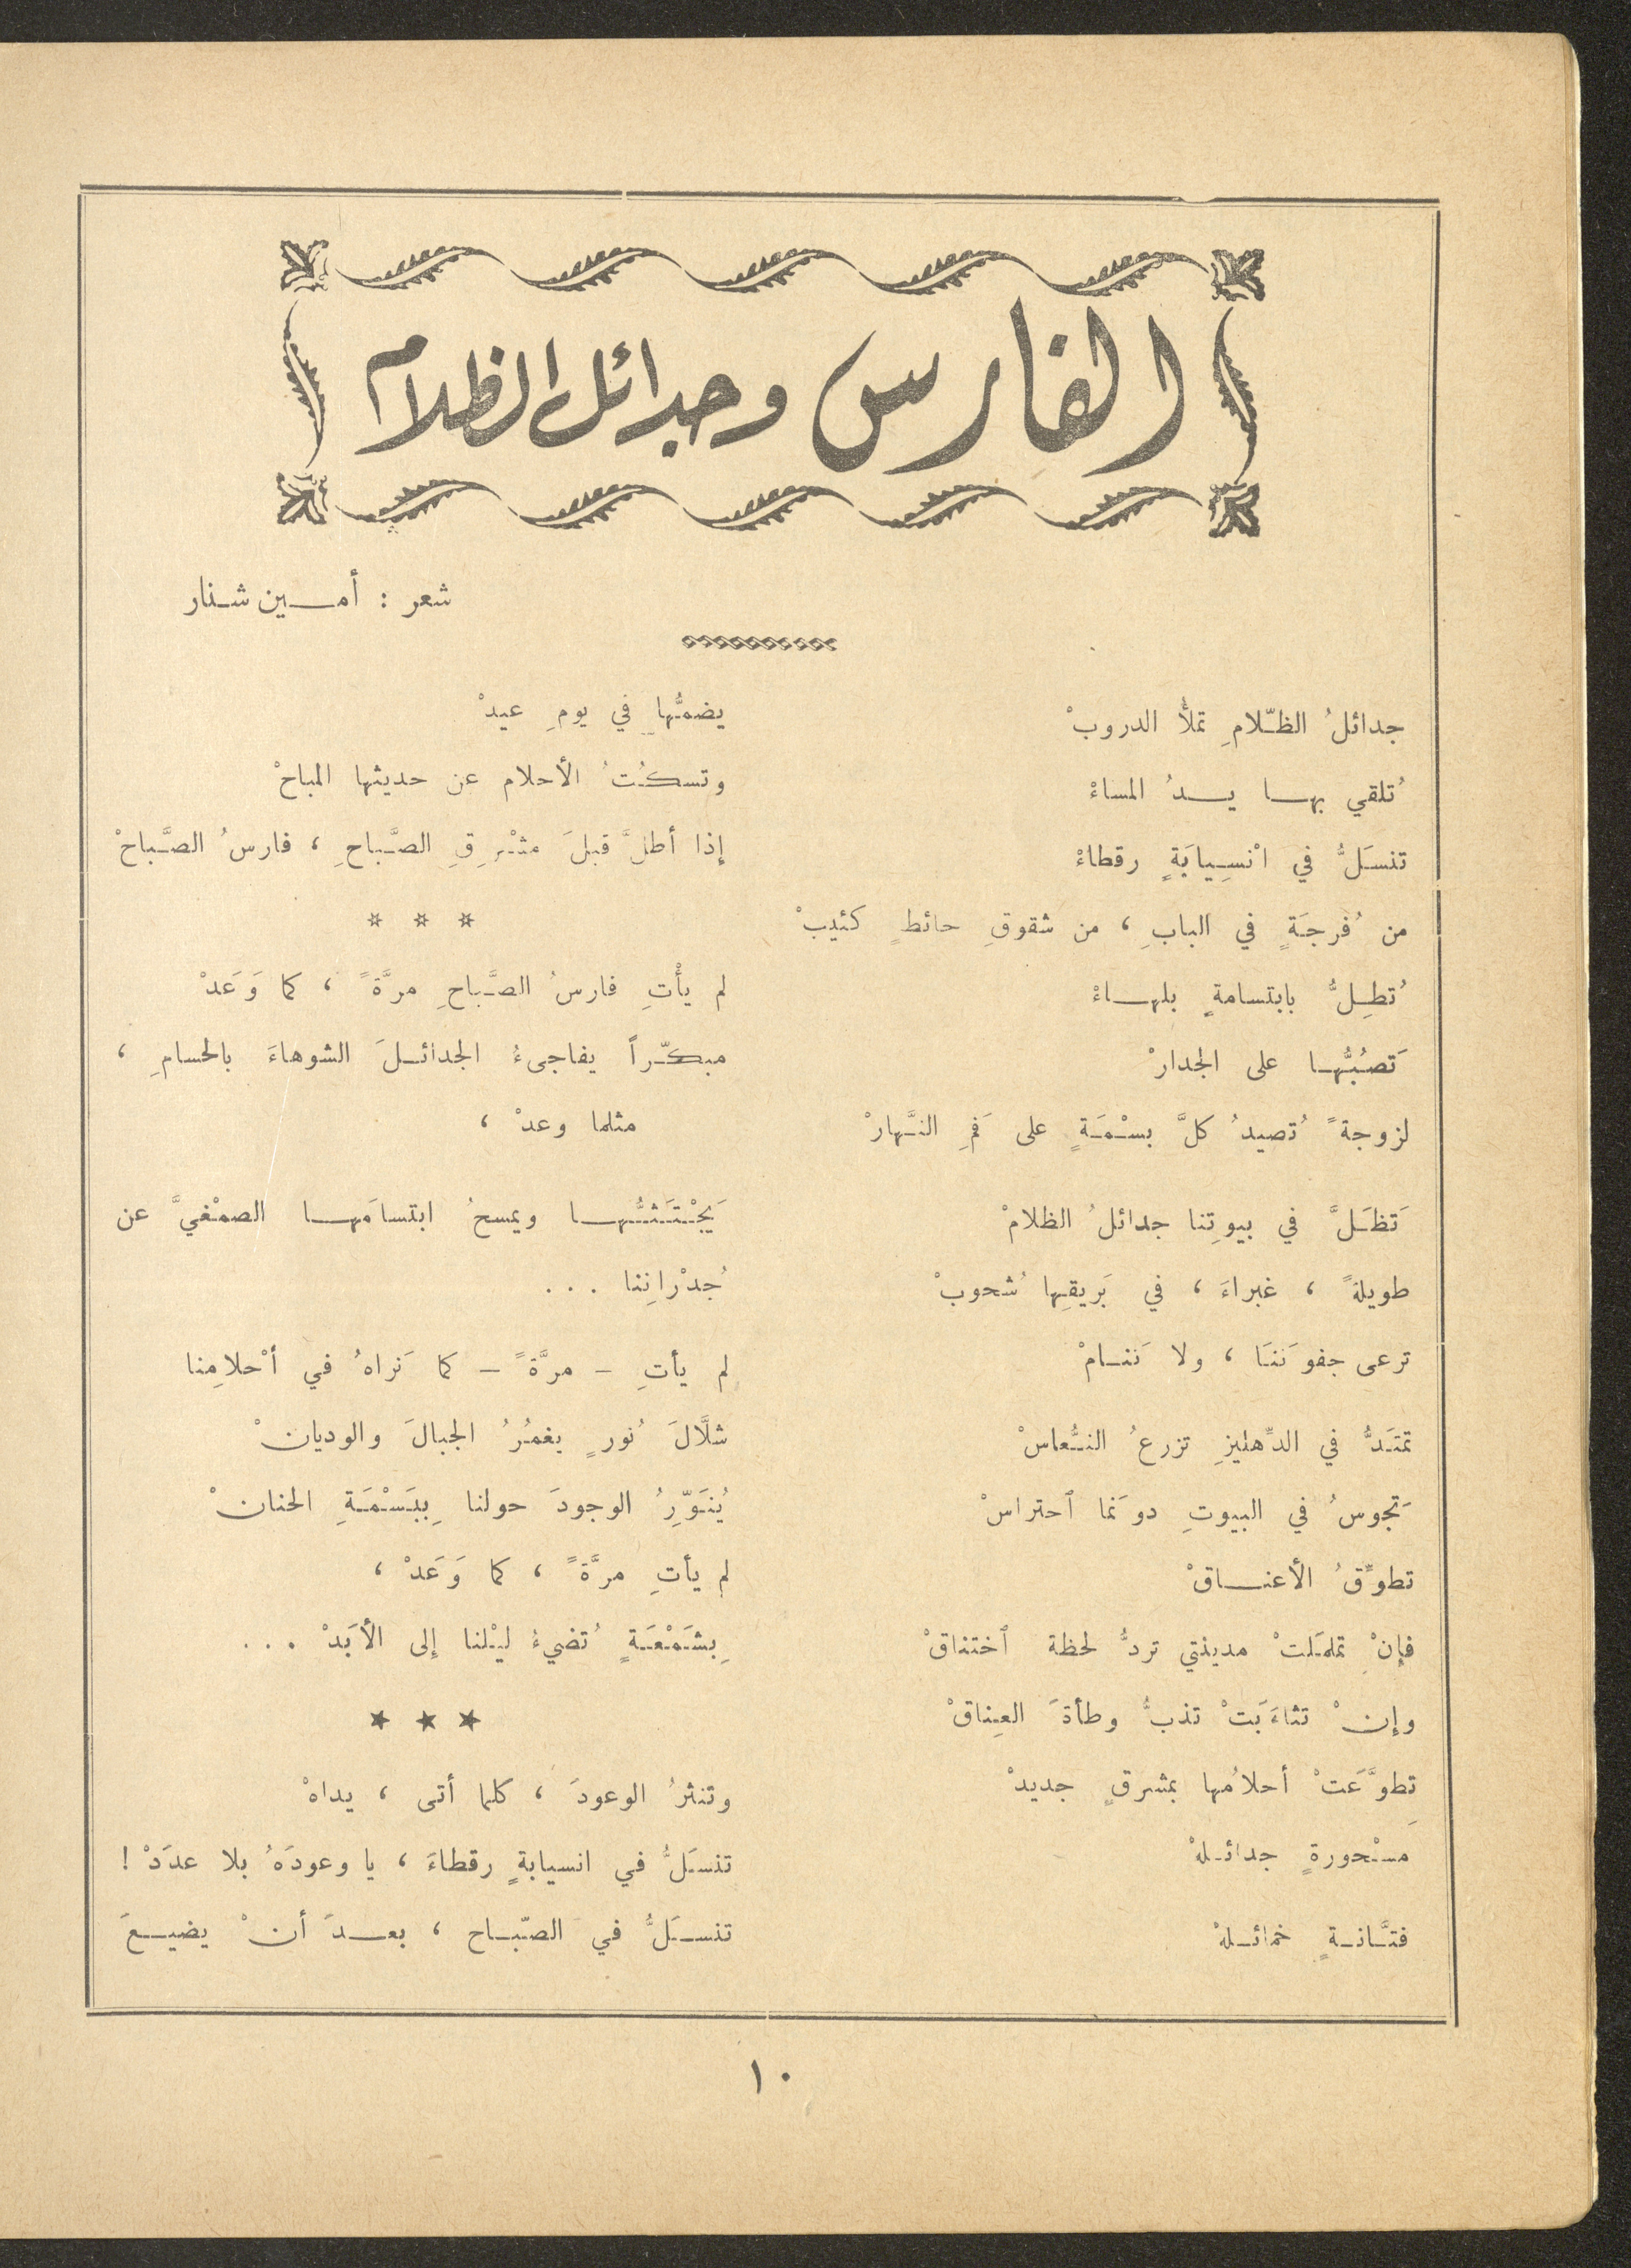 الفارس وجدائل الظلام
شعر : أمين شنار
جدائلُ الظّلامِ تملأُ الدروبْ
تُلقي بها يدُ المساءْ
تنسَلُّ في اْنسِيابَةٍ رقطاءْ
من فُرجَةٍ في البابِ ، من شقوقِ حائطٍ كئيبْ
تُطِلُّ بابتسامةٍ بلهاءْ
تَصُبُّها على الجدارْ
لزوجةً تُصيدُ كلَّ بسْمَةٍ على فَمِ النَّهارْ
تَظَلَّ في بيوتِنا جدائلُ الظلامْ
طويلةً ، غبراءَ ، في بَريقِها شُحوبْ
ترعى جفونَنَا ، ولا تَنامْ
تمتَدُّ في الدِّهليزِ تزرعُ النُّعاسْ
تَجوسُ في البيوتِ دونَما ٱحتراسْ
تطوِّقُ الأعناقْ
فإِنْ تململَتْ مدينتي تردُّ لحظة ٱختناقْ
وإِنْ تثاءَبَتْ تذبُّ وطأةَ العِناقْ
تطوَّعَتْ أحلامُها بمشرقٍ جديدْ
مسْحورةٍ جدائلهْ
فتَّانةٍ خمائلهْ
يضمُّها في يومِ عيدْ
وتسكُتُ الأحلام عن حديثها المباحْ
إذا أطلَّ قبلَ مشْرِقِ الصَّباحِ ، فارسُ الصَّباحْ
* * *
لم يأْتِ فارسُ الصَّباحِ مرَّةً ، كما وَعَدْ
مبكّراً يفاجىءُ الجدائلَ الشوهاءَ بالحسامِ ،
مثلما وعدْ ،
يَجْتَثُّها ويمسحُ ابتسامَها الصمْغيَّ عن
جُدْرانِنا . . .
لم يأتِ – مرَّةً – كما نَراهُ في أحْلامِنا
شلَّالَ نُورٍ يغمُرُ الجبالَ والوديانْ
يُنَوِّرُ الوجودَ حولنا بِبَسْمَةِ الحنانْ
لم يأتِ مرَّةً ، كما وَعَدْ ،
بِشَمْعَةٍ تُضيءُ ليْلنا إلى الأبَدْ . . .
★ ★ ★
وتنثرُ الوعودَ ، كلما أتى ، يداهْ
تنسَلُّ في انسيابةٍ رقطاءَ ، يا وعودَهُ بلا عدَدْ !
تنسَلُّ في الصّباح ، بعدَ أنْ يضيعَ
١٠